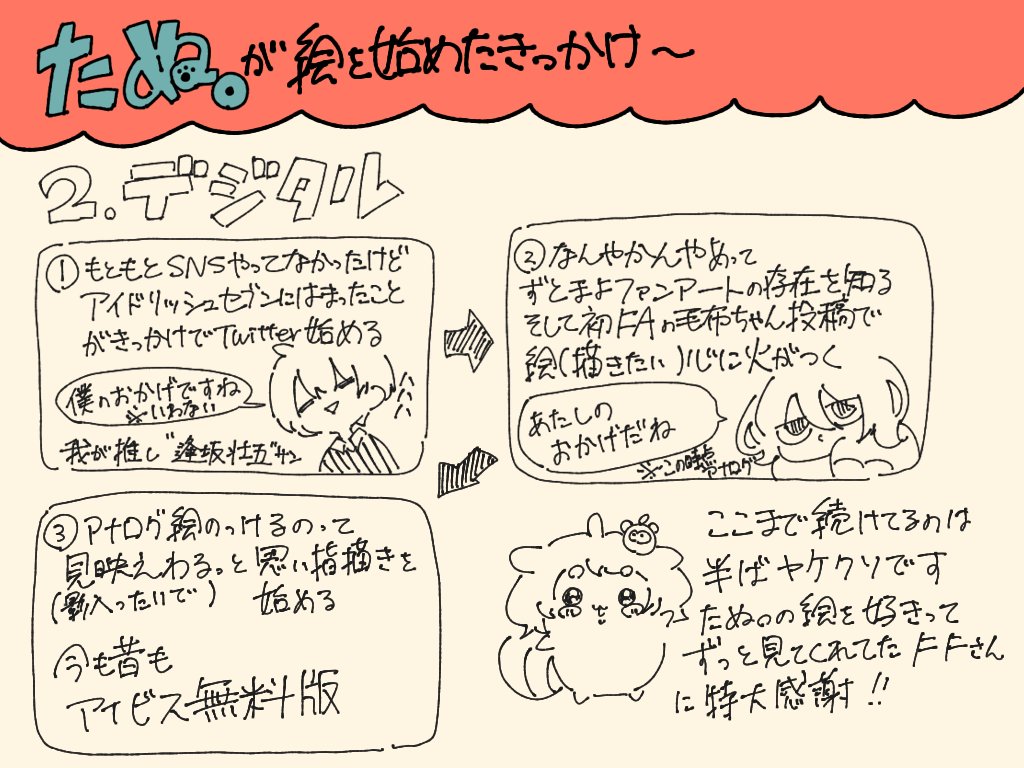 たぬ。が絵を始めたきっかけ〜
2.デジタル
① もともとSNSやってなかったけど
アイドリッシュセブンにはまったこと
がきっかけでTwitter始める
僕のおかげですね
※いわない
我が推し"逢坂壮五"サン
② なんやかんやあって
ずとまよファンアートの存在を知る
そして初FAの毛布ちゃん投稿で
絵(描きたい)心に火がつく
あたしの
おかげだね
※この時点アナログ
③ アナログ絵のっけるのって
見映えわるっと思い指描きを
(影入ったいで) 始める
今も昔も
アイビス無料版
ここまで続けてるのは
半ばヤケクソです
たぬ。の絵を好きって
ずっと見てくれてたFFさん
に特大感謝!!